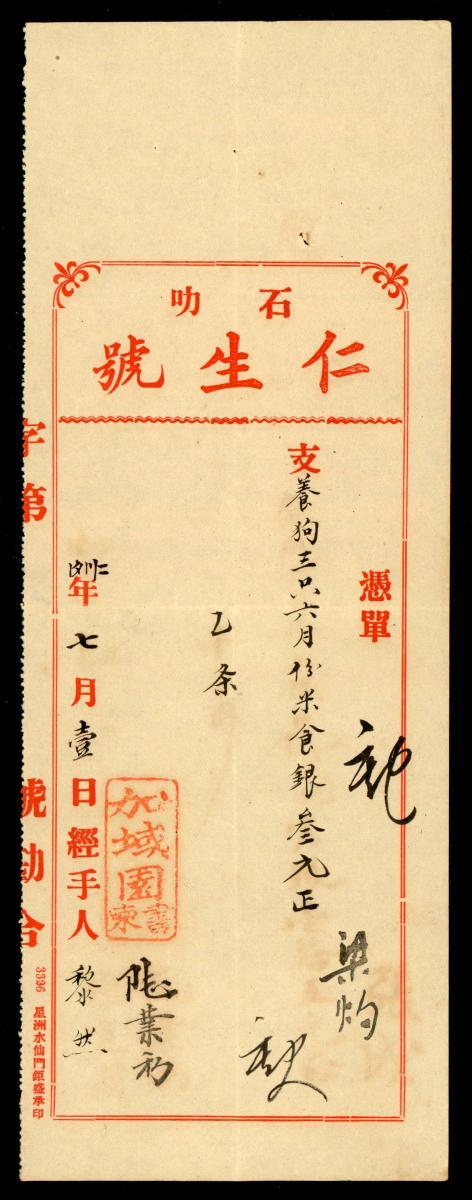 石叻
仁生號
憑單
支養狗三只六月份米食銀叁元正
乙条
梁灼
加域園
書柬
年七月壹日經手人黎然
葉初
字第
號勘合
3396 星洲水仙門鉅盛承印